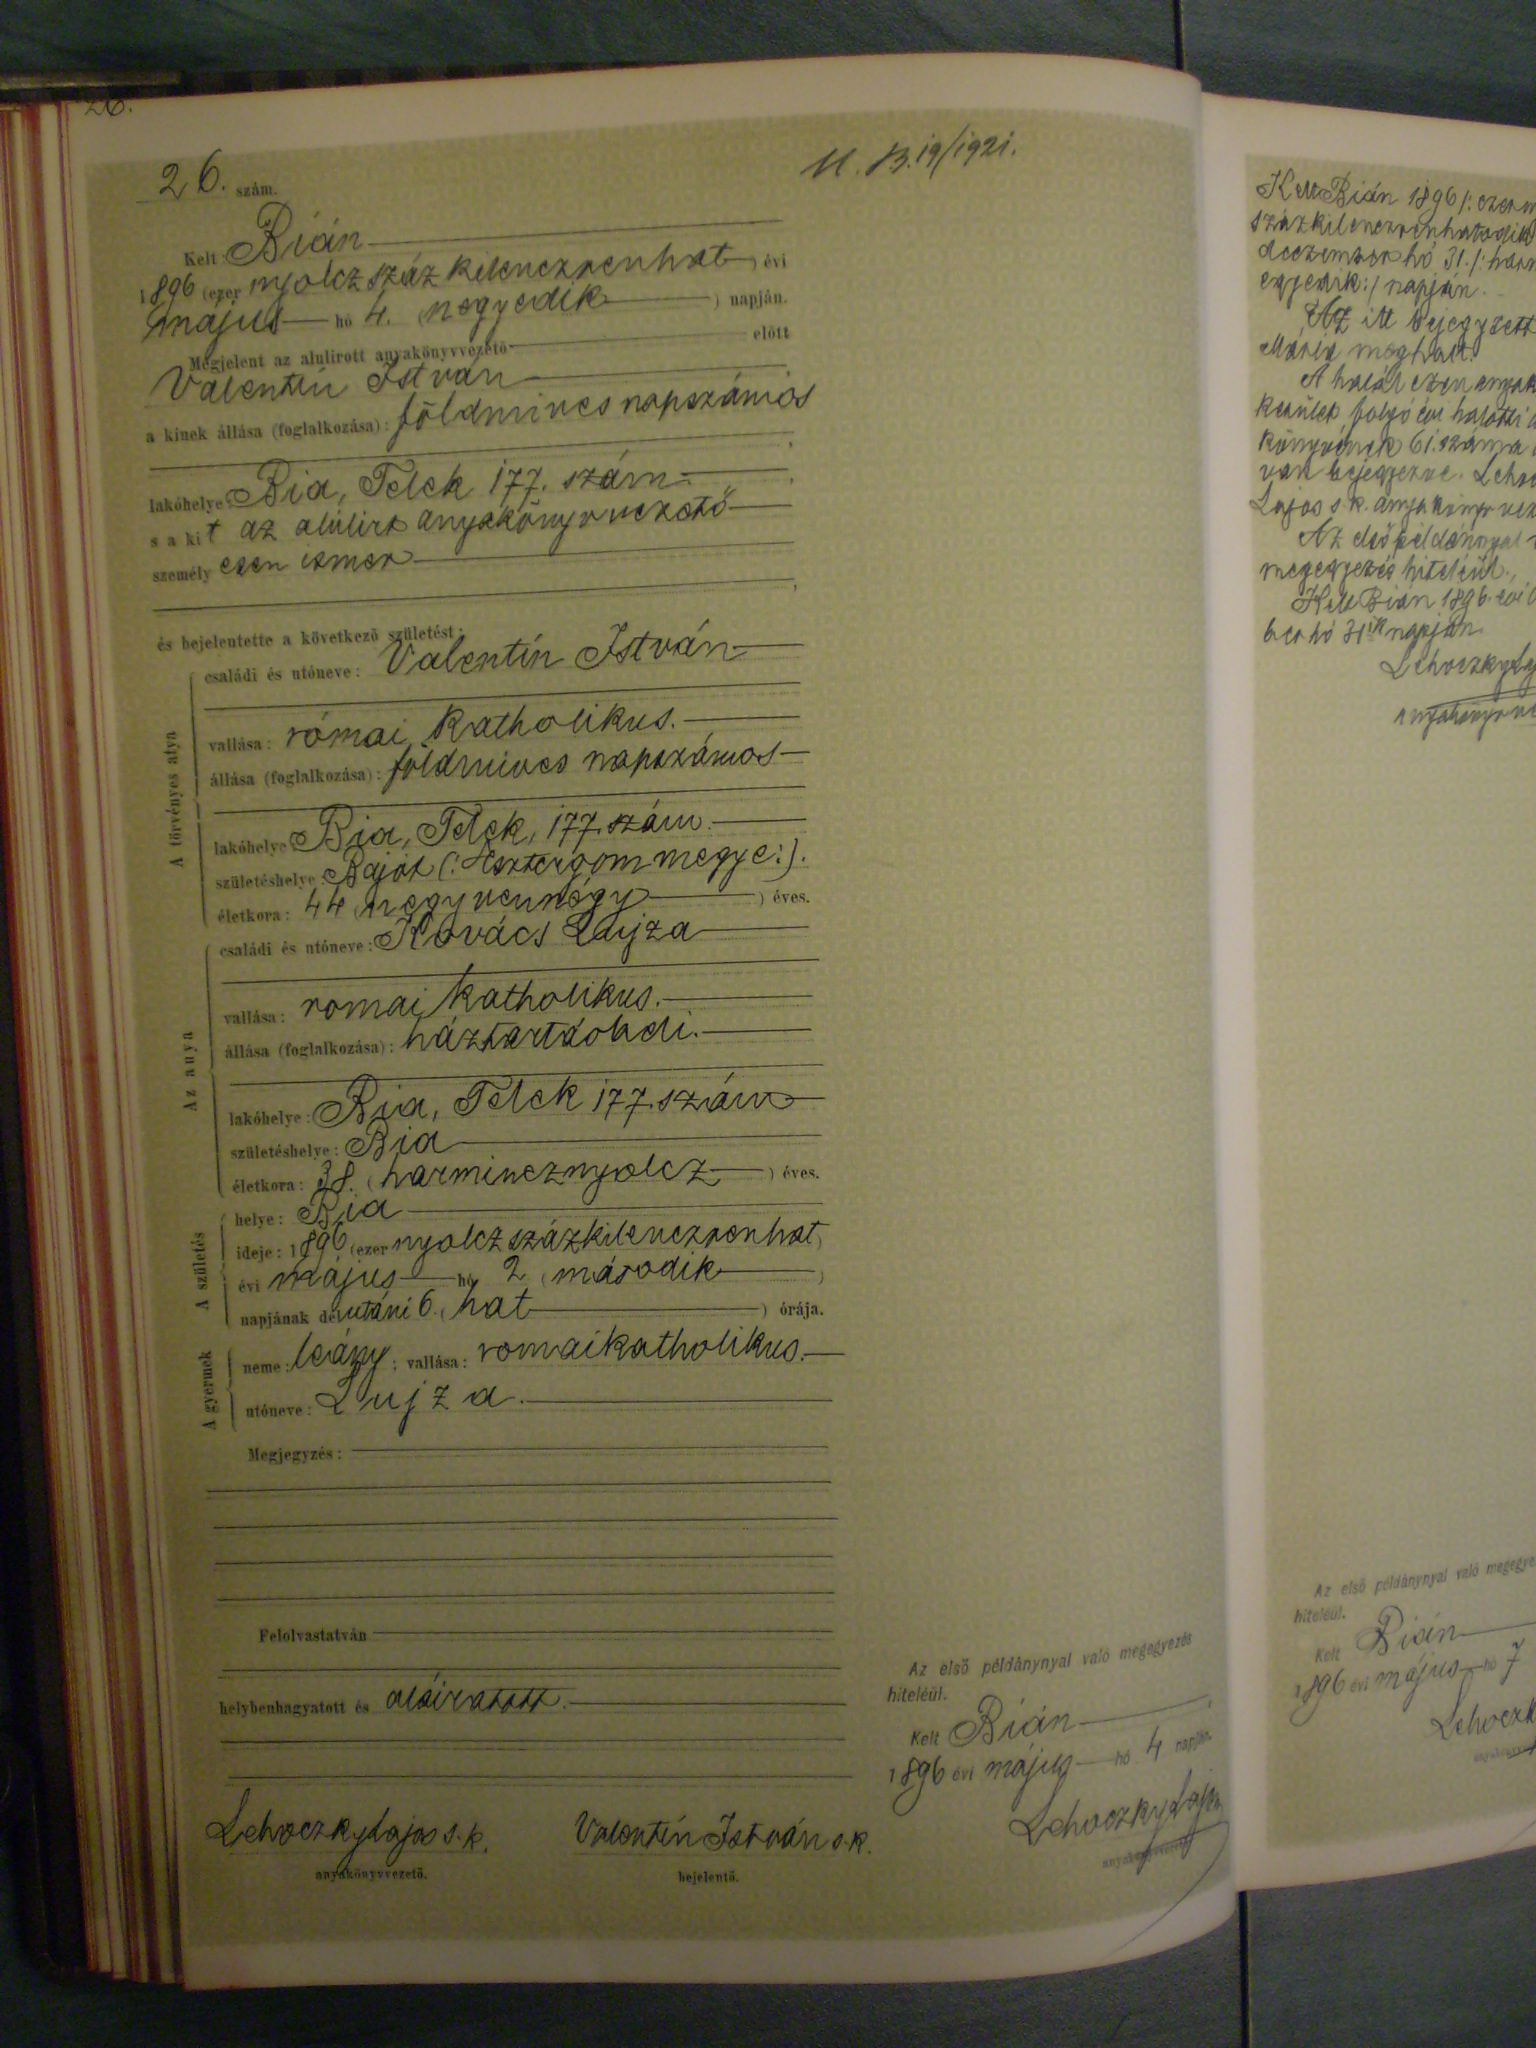 26.
26. szám.
M. B. 19/1921.
Kelt: Bián
1896 (ezer nyolczszázkilenczvenhat) évi
május hó 4. (negyedik) napján.
Megjelent az alulirott anyakönyvvezető előtt
Valentin István
a kinek állása (foglalkozása): földmives napszámos
lakóhelye: Bia, Telek 177. szám
s a kit az alulirt anyakönyvvezető
személy esen ismer
és bejelentette a következő születést:
A törvényes atya
családi és utóneve: Valentin István
vallása: római katholikus.
állása (foglalkozása): földmives napszámos
lakóhelye: Bia, Telek, 177. szám.
születéshelye: Bajót (: Esztergom megye:).
életkora: 44 (negyvennégy) éves.
Az anya
családi és utóneve: Kovács Lujza
vallása: romai katholikus.
állása (foglalkozása): háztartásbeli.
lakóhelye: Bia, Telek 177. szám
születéshelye: Bia
életkora: 38. (harmincznyolcz) éves.
A születés
helye: Bia
ideje: 1896 (ezer nyolczszázkilenczvenhat)
évi május hó 2 (második)
napjának délutáni 6. (hat) órája.
A gyermek
neme: leány; vallása: romaikatholikus.
utóneve: Lujza.
Megjegyzés:
Felolvastatván
helybenhagyatott és aláiratott.
Lehoczky Lajos s. k.
anyakönyvvezető.
Valentín István s. k.
bejelentő.
Az első példánynyal való megegyezés
hiteléül.
Kelt Bián
1896 évi május hó 4 napján.
Lehoczky Lajos
anyakönyvvezető
Kelt Bián 1896 /: ezer
százkilenczvenhatodik
deczember hó 31. /: harm
egyedik :/ napján.
Az itt bejegyzett
Mária meghalt.
A halál ezen anyak
kerület folyó évi halotti a
könyvének 61. száma
van bejegyezve. Leho
Lajos s. k. anyakönyvvez
Az első példánnyal
megegyezés hiteléül.
Kelt Bián 1896. évi
ber hó 31ik napján
Lehoczky
anyakönyvv
Az első példánynyal való megegye
hiteléül.
Kelt Bián
1896 évi május hó 7
Lehoczk
anyakönyvv